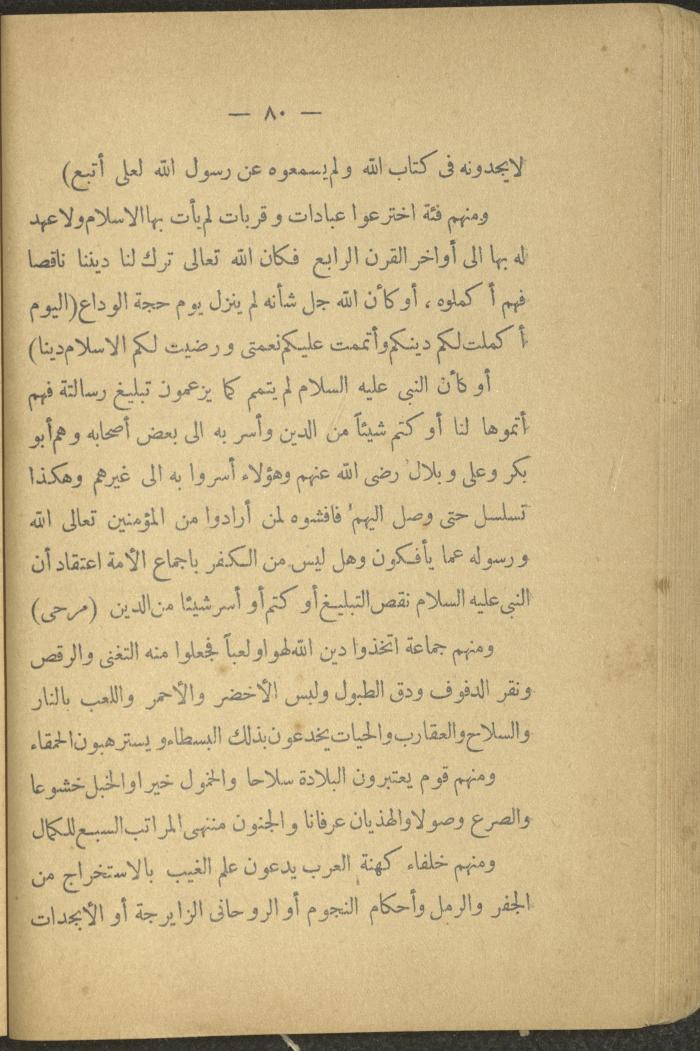 — ٨٠ —
لايجدونه فى كتاب الله ولم يسمعوه عن رسول الله لعلى أتبع)
ومنهم فئة اخترعوا عبادات وقربات لم يأت بها الاسلام ولا عهد
له بها الى أواخر القرن الرابع فكان الله تعالى ترك لنا ديننا ناقصا
فهم أكملوه ، أو كأن الله جل شأنه لم ينزل يوم حجة الوداع (اليوم
أكملت لكم دينكم وأتممت عليكم نعمتى ورضيت لكم الاسلام دينا)
أو كأن النبى عليه السلام لم يتمم كما يزعمون تبليغ رسالتة فهم
أتموها لنا أو كتم شيئاً من الدين وأسر به الى بعض أصحابه وهم أبو
بكر وعلى وبلال رضى الله عنهم وهؤلاء أسروا به الى غيرهم وهكذا
تسلسل حتى وصل اليهم فافشوه لمن أرادوا من المؤمنين تعالى الله
ورسوله عما يأفكون وهل ليس من الكفر باجماع الأمة اعتقاد أن
النبى عليه السلام نقص التبليغ أو كتم أو أسر شيئا من الدين (مرحى)
ومنهم جماعة اتخذوا دين الله لهوا ولعباً فجعلوا منه التغنى والرقص
ونقر الدفوف ودق الطبول ولبس الأخضر والأحمر واللعب بالنار
والسلاح والعقارب والحيات يخدعون بذلك البسطاء ويسترهبون الحمقاء
ومنهم قوم يعتبرون البلادة سلاحا والخمول خيرا والخبل خشوعا
والصرع وصولا والهذيان عرفانا والجنون منتهى المراتب السبع للكمال
ومنهم خلفاء كهنة العرب يدعون علم الغيب بالاستخراج من
الجفر والرمل وأحكام النجوم أو الروحانى الزايرجة أو الأبجدات